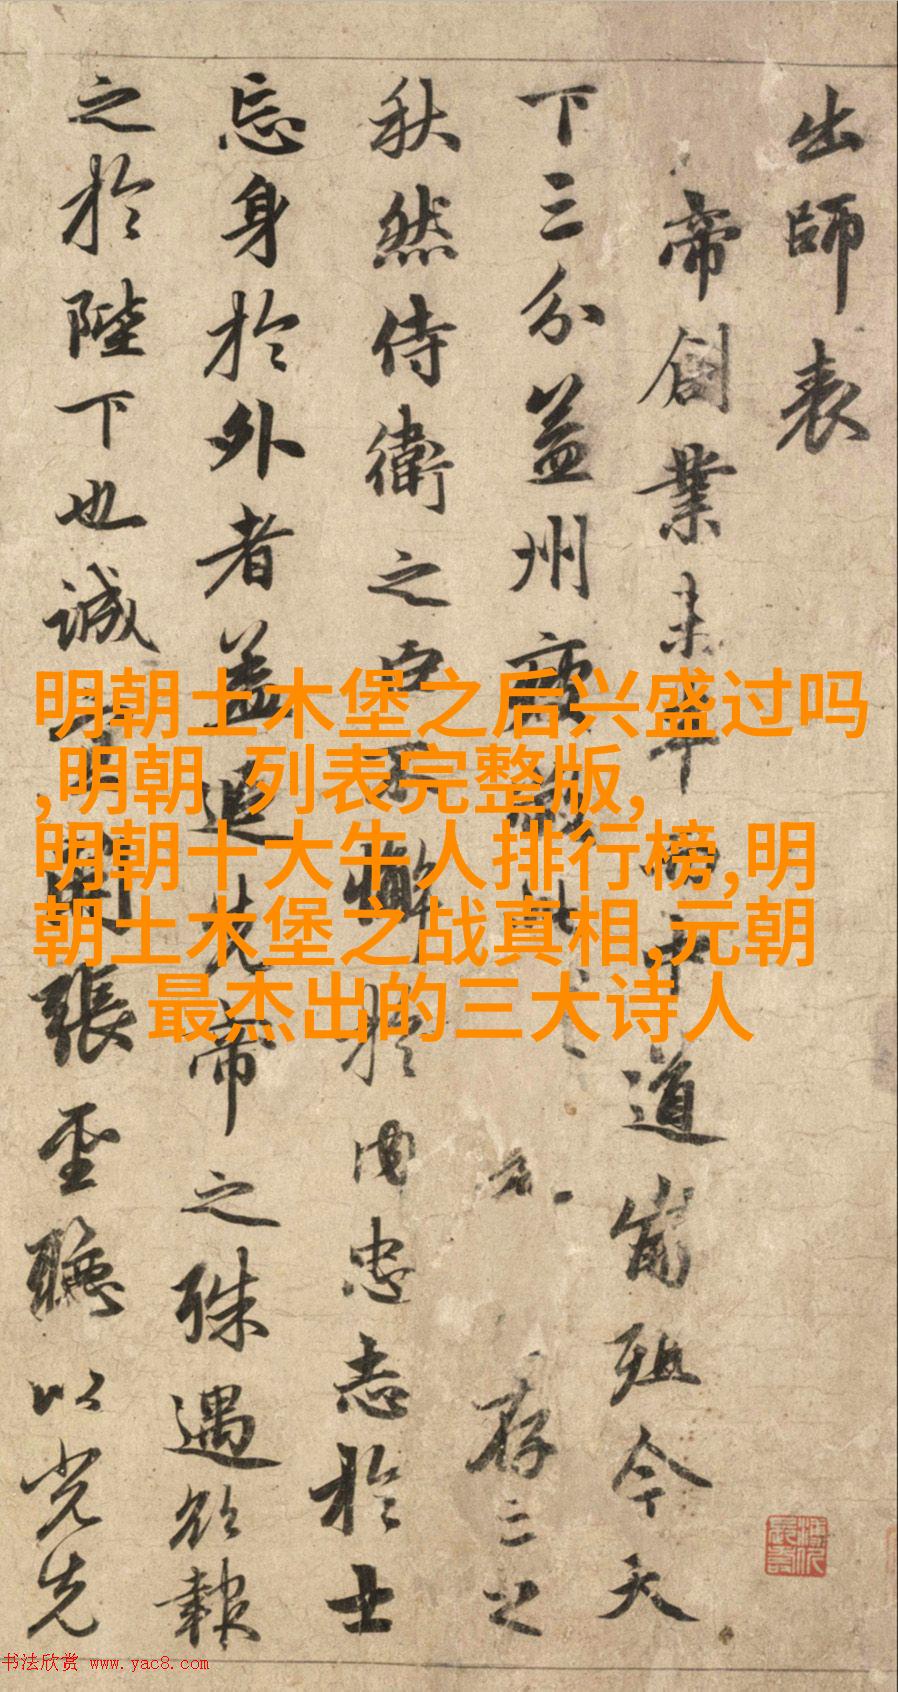 出師表
帝創業未半而中道崩殂今天
下三分益州疲敝此存之
秋然侍衛之臣不懈於內忠志於士
忘身於外者蓋追先帝之殊遇欲報
之於陛下也誠宜開張聖聽以光先
明朝土木堡之后兴盛过吗
,明朝 列表完整版,
明朝十大牛人排行榜,明
朝土木堡之战真相,元朝
最杰出的三大诗人
书法欣赏 www.yac8.com